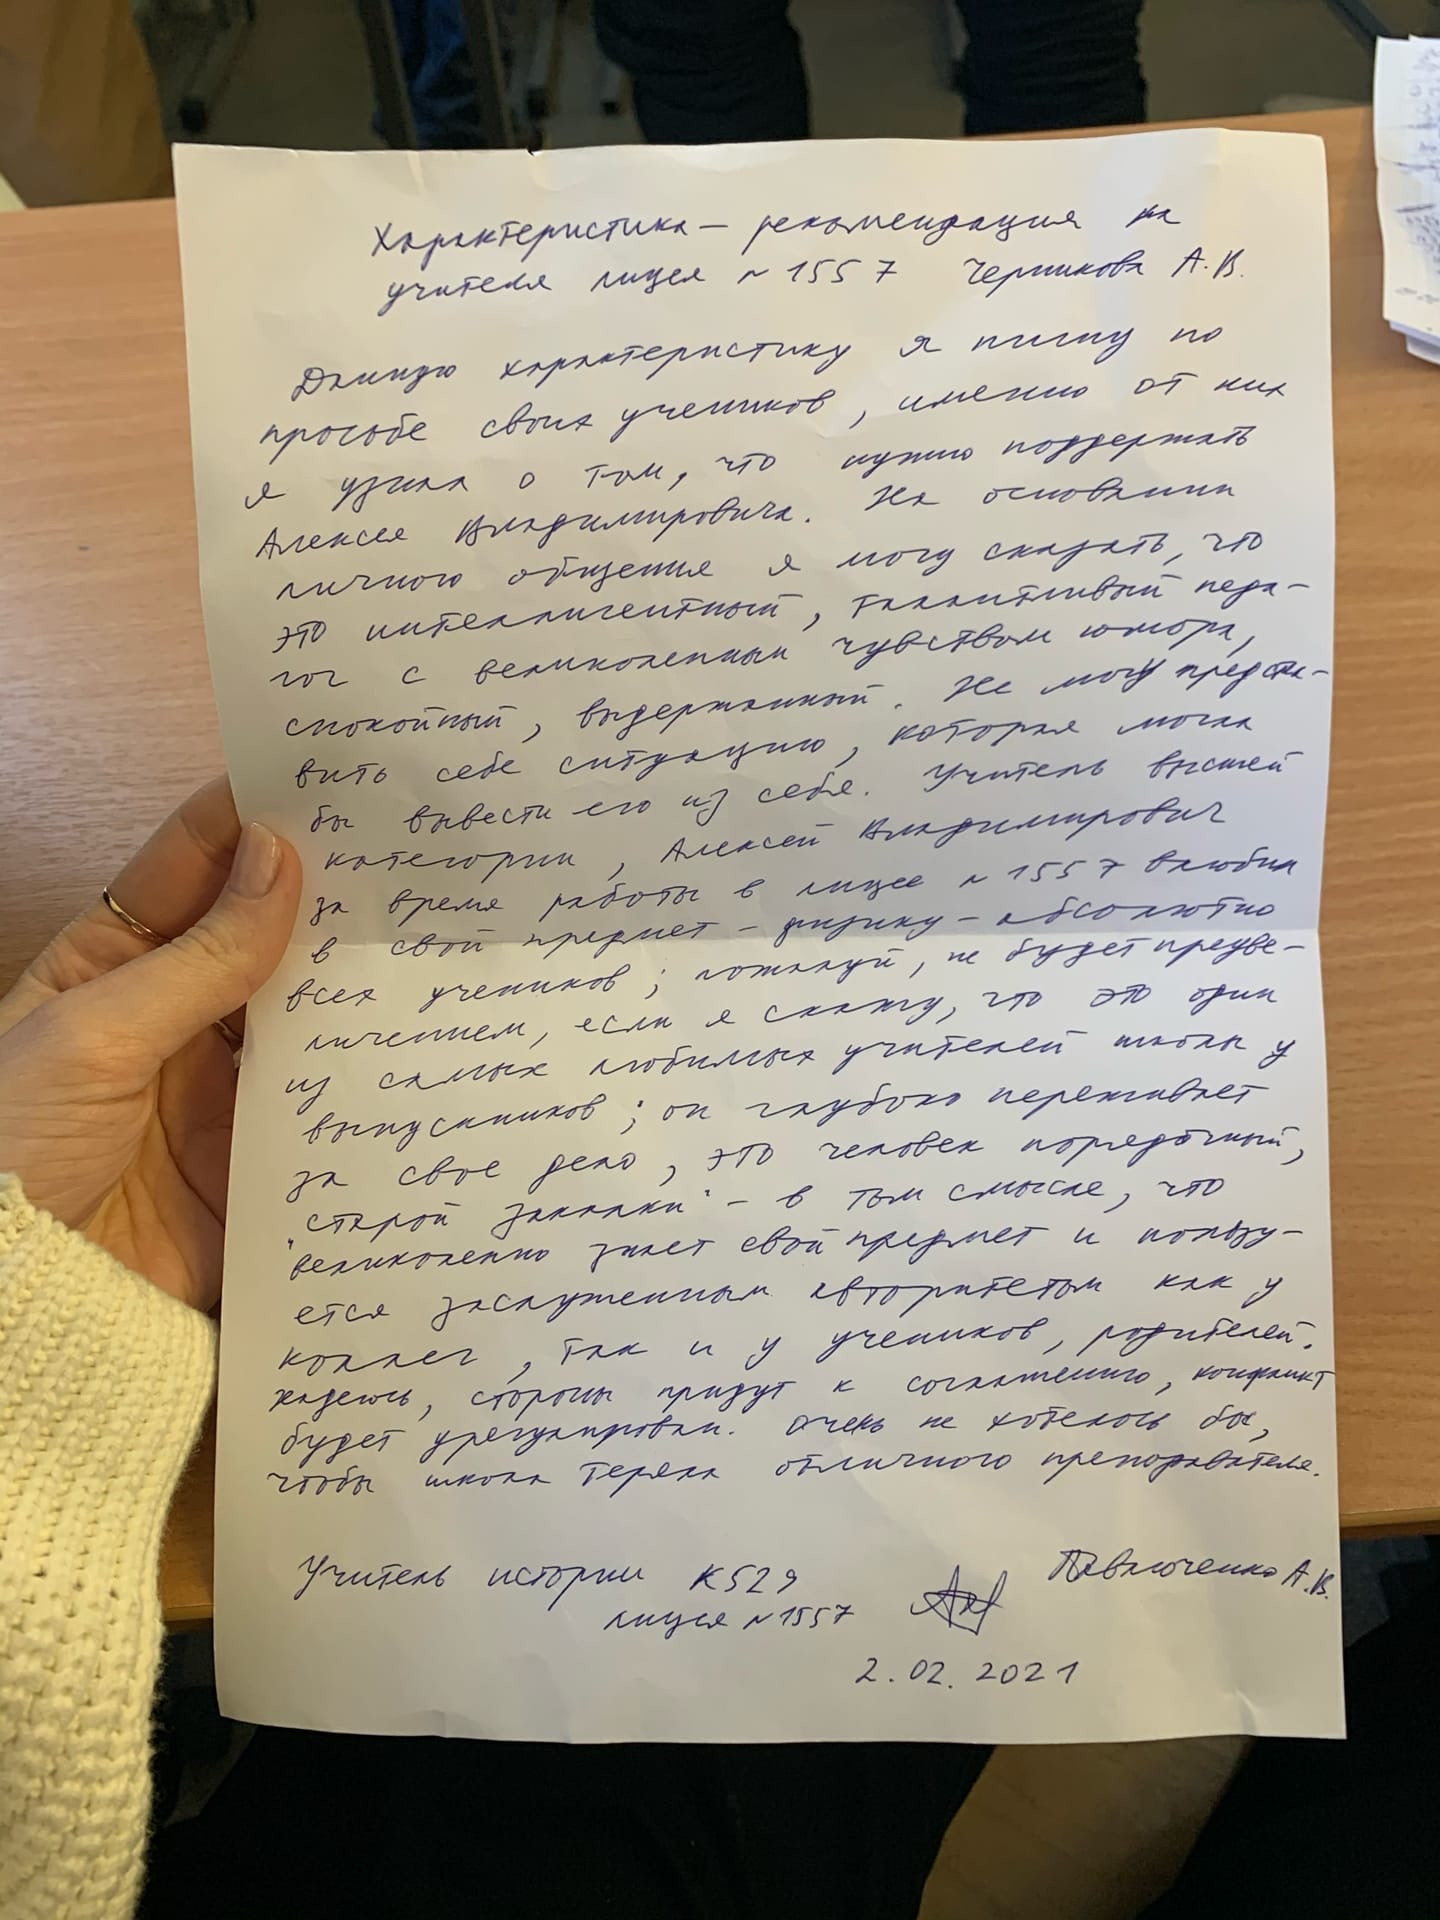 Характеристика – рекомендация на
учителя лицея № 1557 Черникова А.В.
Данную характеристику я пишу по
просьбе своих учеников, именно от них
я узнала о том, что нужно поддержать
Алексея Владимировича. На основании
личного общения я могу сказать, что
это интеллигентный, талантливый педа-
гог с великолепным чувством юмора,
спокойный, выдержанный. Не могу предста-
вить себе ситуацию, которая могла
бы вывести его из себя. Учитель высшей
категории, Алексей Владимирович
за время работы в лицее № 1557 влюбил
в свой предмет – физику – абсолютно
всех учеников; пожалуй, не будет преуве-
личением, если я скажу, что это один
из самых любимых учителей школы у
выпускников; он глубоко переживает
за свое дело, это человек порядочный,
"старой закалки" – в том смысле, что
великолепно знает свой предмет и пользу-
ется заслуженным авторитетом как у
коллег, так и у учеников, родителей.
Надеюсь, стороны придут к соглашению, конфликт
будет урегулирован. Очень не хотелось бы,
чтобы школа теряла отличного преподавателя.
Учитель истории к 529 Павлюченко А.В.
лицея № 1557
2.02.2021